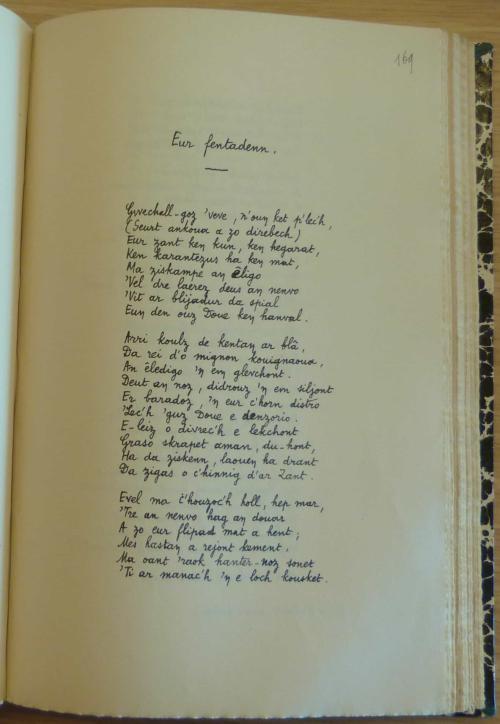 169
Eur fentadenn.
Gwechall-goz 'veve, n'oun ket p'lec'h,
(Seurt ankoua a zo direbech)
Eur zant ken kun, ken hegarat,
Ken karantezus ha ken mat,
Ma ziskampe an êligo
'Vel dre laerez deus an nenvo
'Vit ar blijadur da spial
Eun den ouz Doue ken hanval.
Arri koulz de kentañ ar blâ,
Da rei d'o mignon kouignaoua,
An êledigo 'n em glevchont.
Deut an noz, didrouz 'n em siljont
Er baradoz, 'n eur c'horn distro
'Lec'h 'guz Doue e denzorio.
E-leiz o divrec'h e lekchont
Graso skrapet aman, du-hont,
Ha da ziskenn, laouen ha drant
Da zigas o c'hinnig d'ar Zant.
Evel ma t'houzoc'h holl, hep mar,
'Tre an nenvo hag an douar
A zo eur flipad mat a hent;
Mes hastañ a rejont kement.
Ma oant 'raok hanter-noz sonet
'Ti ar manac'h 'n e loch kousket.